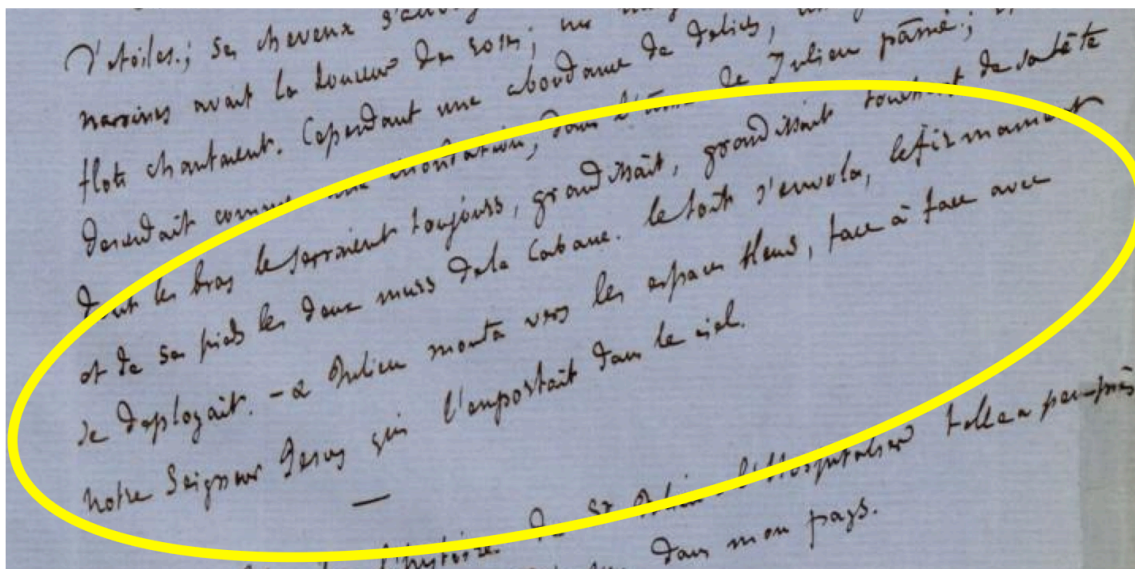 d'étoiles; ses cheveux s'allong
narines avait la douceur des roses; un
flots chantaient. Cependant une abondance de delices,
descendait comme une inondation, dans l'âme de Julien pâmé;
dont les bras le serraient toujours, grandissait, grandissait touchant de sa tête
et de ses pieds les deux murs de la cabane. le toit s'envola, le firmament
se deployait. – & Julien monta vers les espaces bleus, face à face avec
notre Seigneur Jesus qui l'emportait dans le ciel.
l'histoire de St Julien l'Hospitalier telle a peu près
dans mon pays.